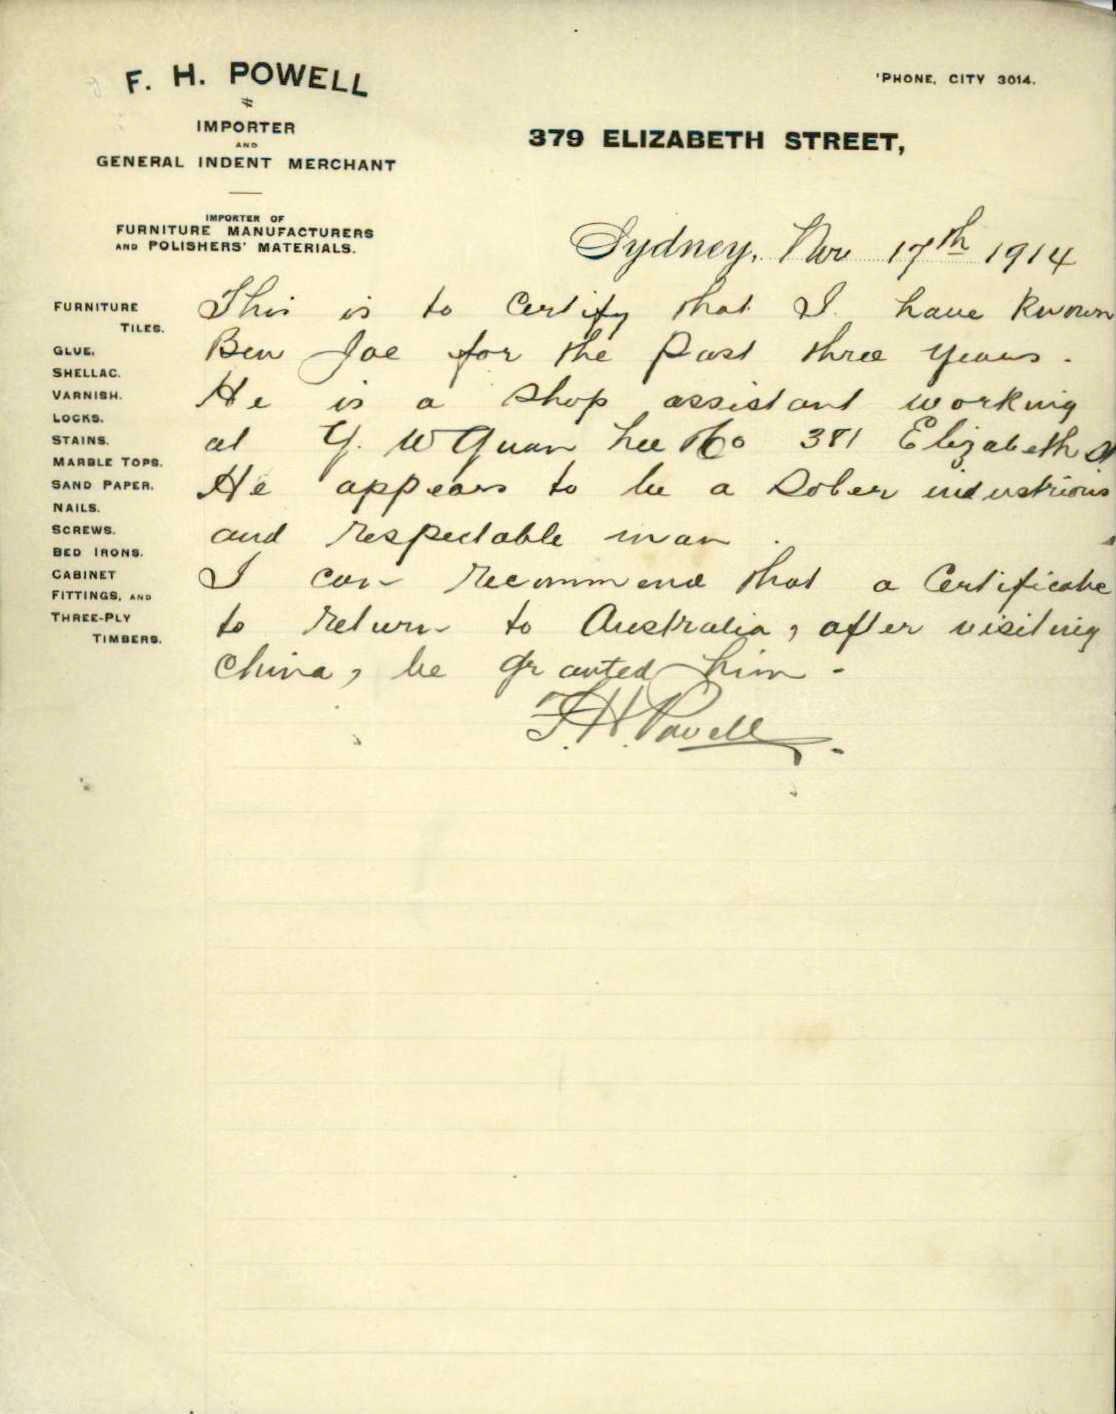 F. H. POWELL
IMPORTER
AND
GENERAL INDENT MERCHANT
IMPORTER OF
FURNITURE MANUFACTURERS
AND POLISHERS' MATERIALS.
'PHONE, CITY 3014.
379 ELIZABETH STREET,
Sydney, Nov 17th 1914
FURNITURE
TILES.
GLUE.
SHELLAC.
VARNISH.
LOCKS.
STAINS.
MARBLE TOPS.
SAND PAPER.
NAILS.
SCREWS.
BED IRONS.
CABINET
FITTINGS, AND
THREE-PLY
TIMBERS.
This is to Certify that I have known
Ben Joe for the past three years.
He is a shop assistant working
at Y. W Quan Lee & Co 381 Elizabeth St
He appears to be a sober industrious
and respectable man.
I can recommend that a Certificate
to return to Australia, after visiting
China, be granted him.
F. H. Powell